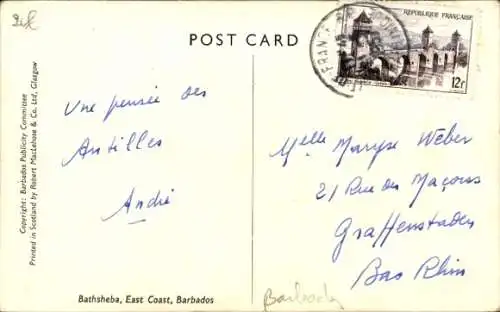 POST CARD
RÉPUBLIQUE FRANÇAISE
12f
FRANCE
Copyright: Barbados Publicity Committee
Printed in Scotland by Robert MacLehose & Co. Ltd, Glasgow
Une pensée des
Antilles
André
Melle Maryse Weber
21 Rue des Maçons
Graffenstaden
Bas Rhin
Bathsheba, East Coast, Barbados
Barbados